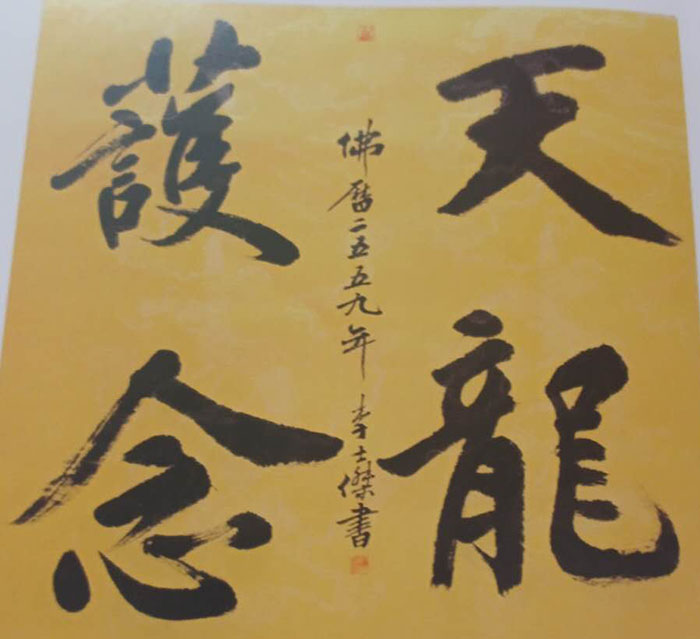 天龍
護念
佛曆二五五九年 李士傑書